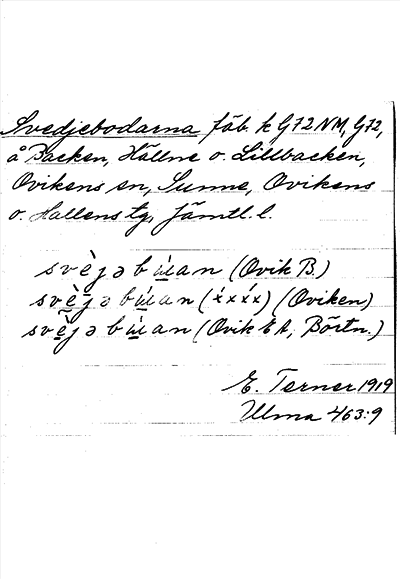 Svedjebodarna fäb. k G72 NM, G72,
å Backen, Hällne o. Lillbacken,
Ovikens sn, Sunne, Ovikens
o. Hallens tg, Jämtl. l.
svὲjəbɯ́an (Ovik B.)
svὲjəbɯ́an (x́xx́x) (Oviken)
svὲjəbɯ́an (Ovik E A, Börtn.)
E. Terner 1919
Ulma 463:9